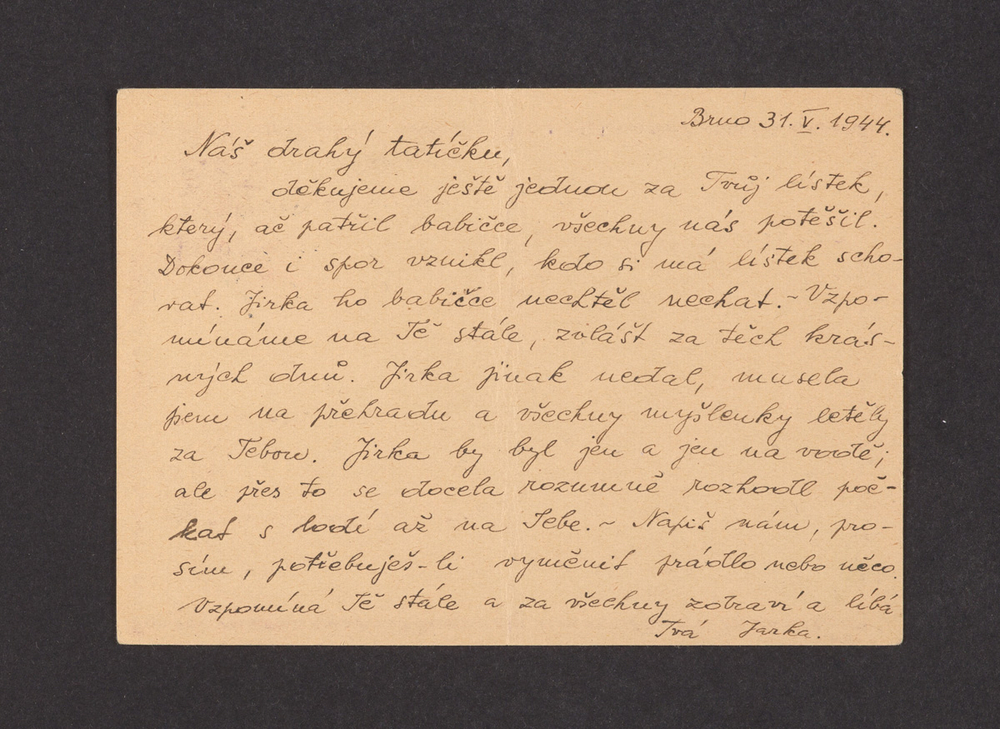 Brno 31. V. 1944.
Náš drahý tatíčku,
děkujeme ještě jednou za Tvůj lístek,
který, ač patřil babičce, všechny nás potěšil.
Dokonce i spor vznikl, kdo si má lístek scho-
vat. Jirka ho babičce nechtěl nechat. - Vzpo-
mínáme na Tě stále, zvlášť za těch krás-
ných dnů. Jirka jinak nedal, musela
jsem na přehradu a všechny myšlenky letěly
za Tebou. Jirka by byl jen a jen na vodě;
ale přes to se docela rozumně rozhodl poč-
kat s lodí až na Tebe. - Napiš nám, pro-
sím, potřebuješ-li vyměnit prádlo nebo něco.
Vzpomíná Tě stále a za všechny zdraví a líbá
Tvá Jarka.